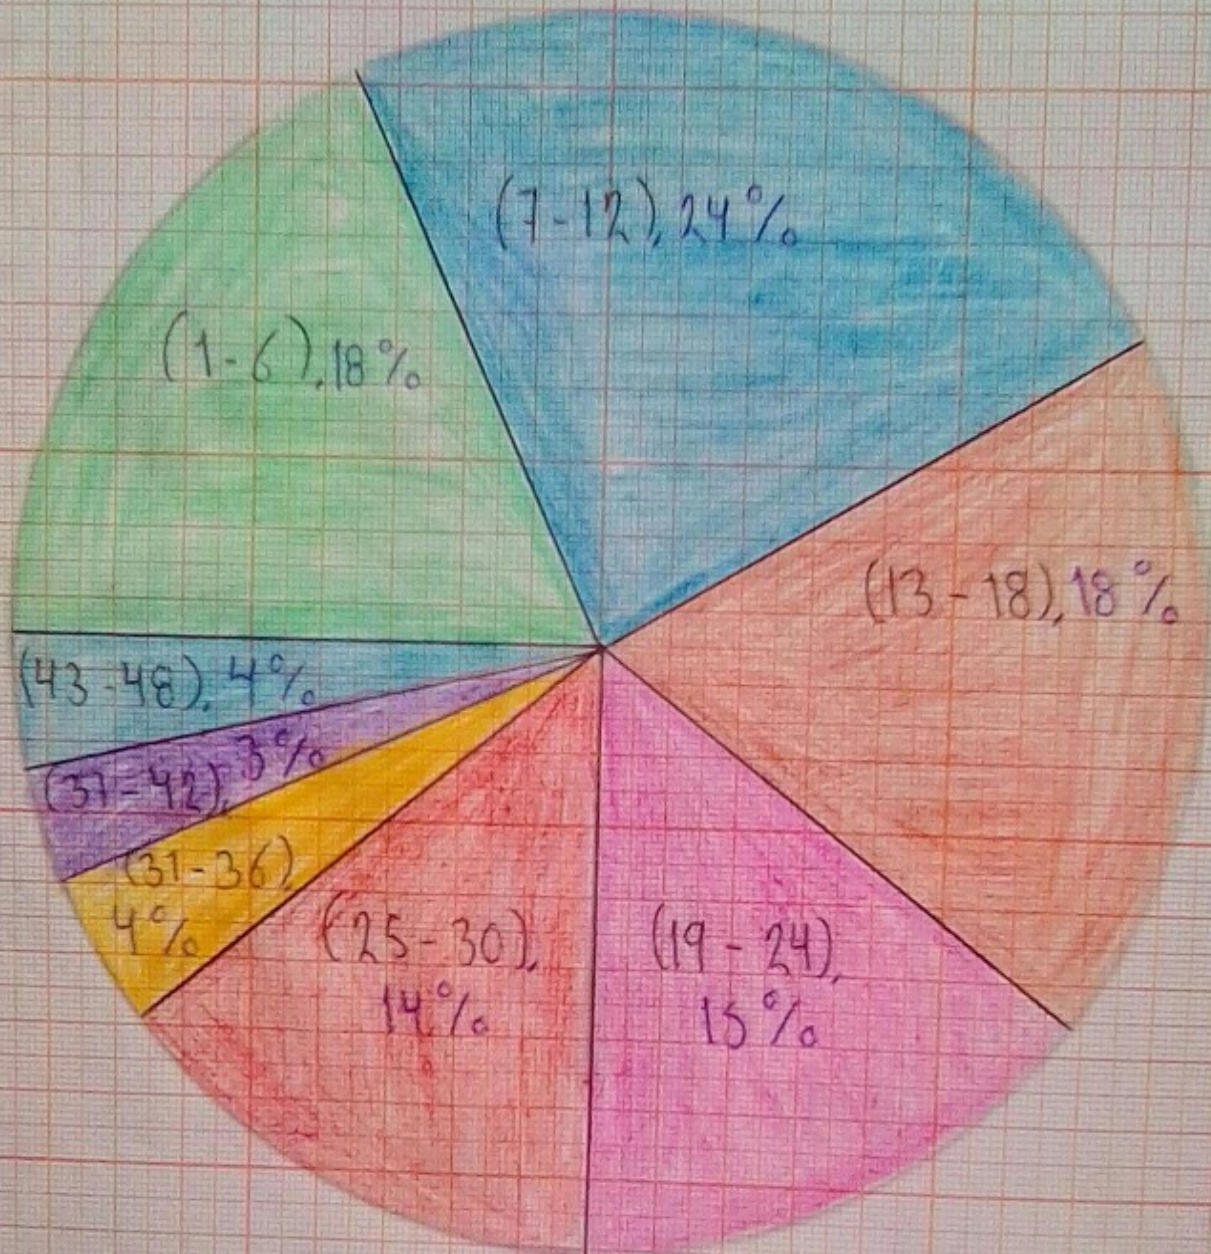 (7-12), 24%
(1-6), 18%
(13-18), 18%
(43-48), 4%
(37-42), 3%
(31-36),
4%
(25-30),
14%
(19-24),
15%